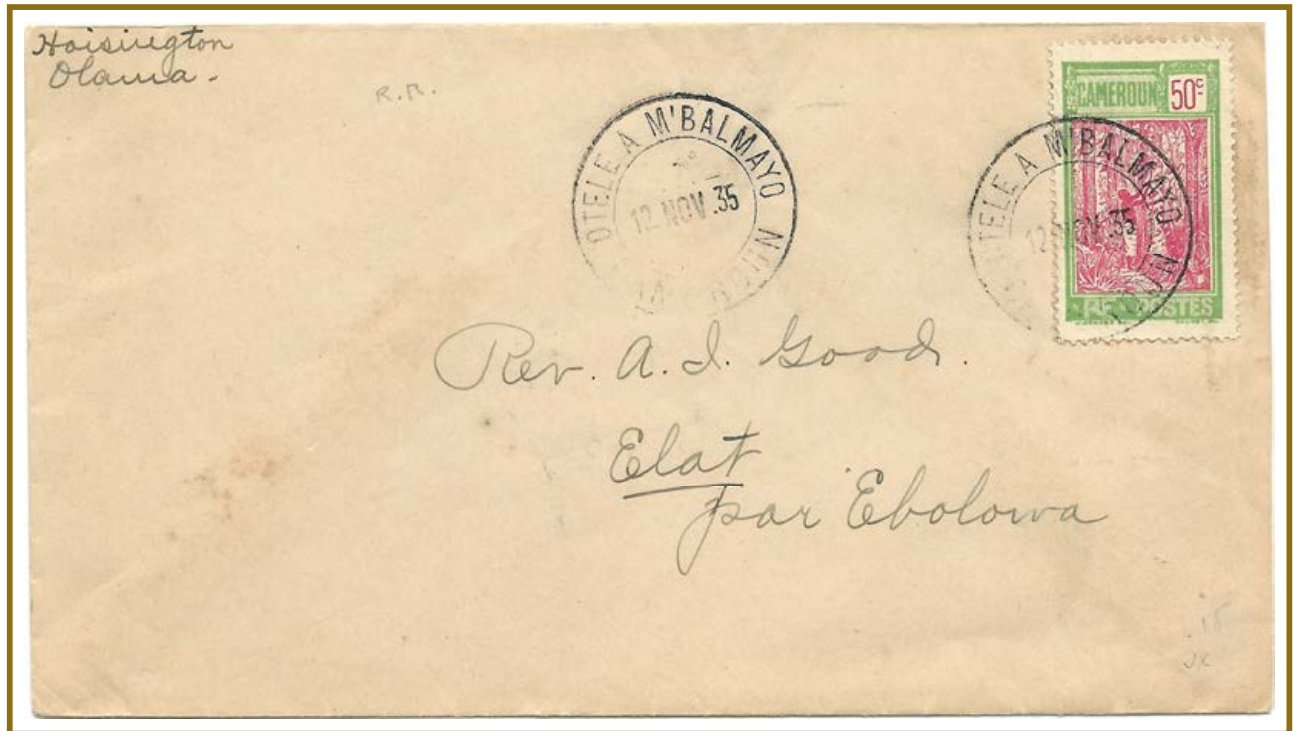 Hoisington
Olama.
R.R.
OTELE A M'BALMAYO
12 NOV.35
CAMEROUN 50c
RF POSTES
OTELE A M'BALMAYO
12 NOV.35
Rev. A. I. Good.
Elat
par Ebolowa
15